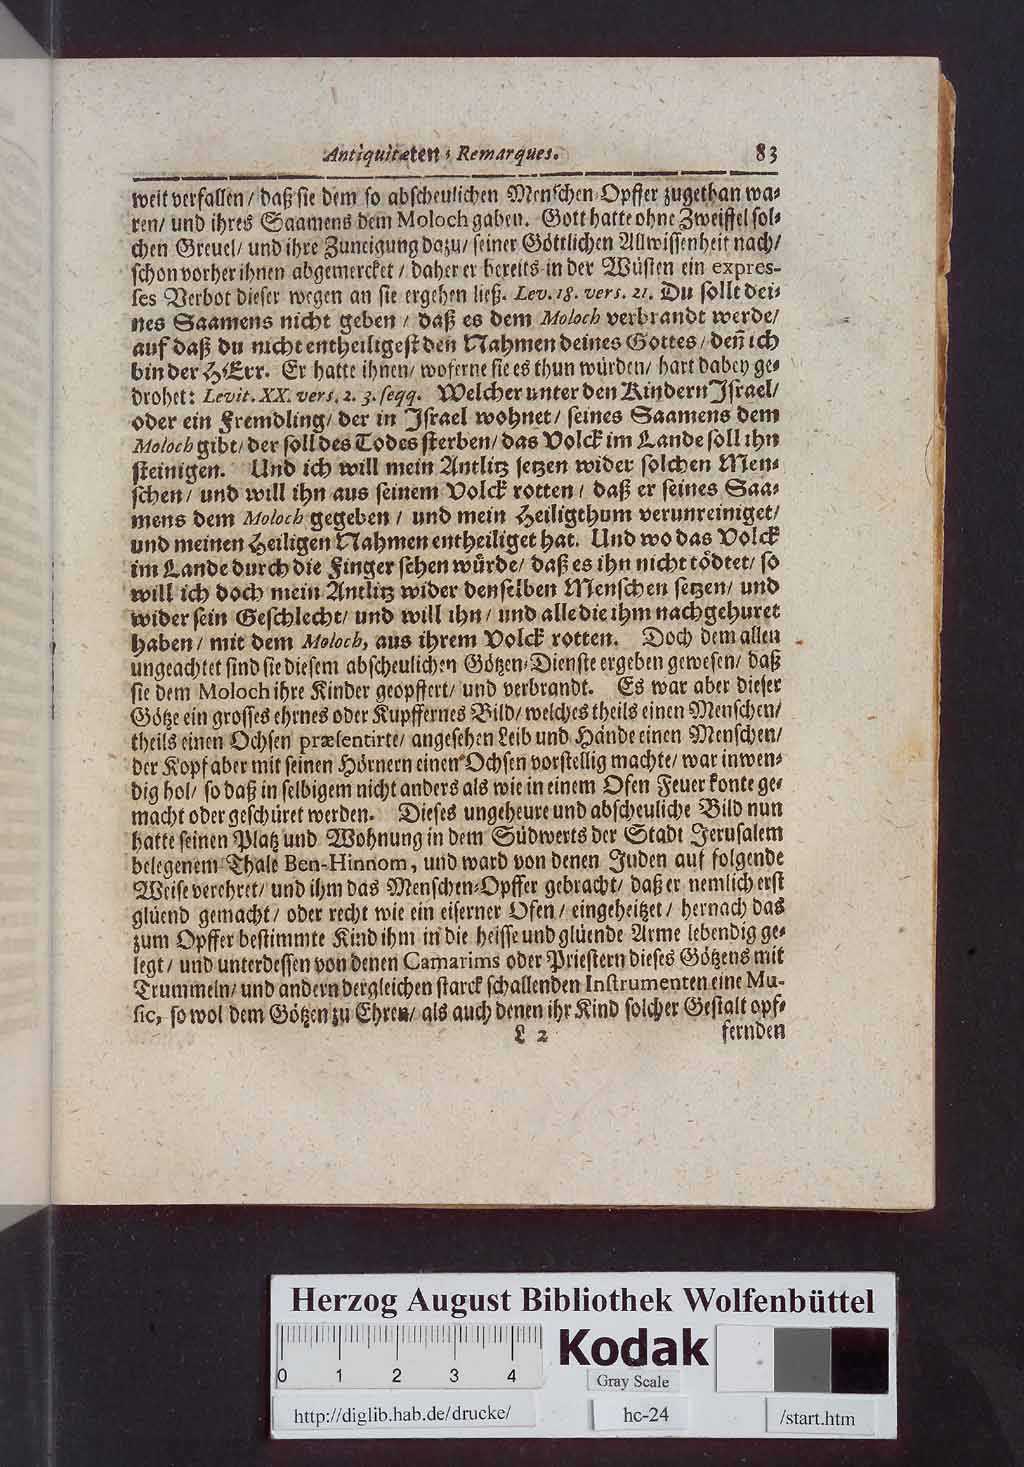 Antiquitæten-Remarques. 83
weit verfallen/ daß sie dem so abscheulichen Menschen-Opffer zugethan wa-
ren/ und ihres Saamens dem Moloch gaben. Gott hatte ohne Zweiffel sol-
chen Greuel/ und ihre Zuneigung dazu/ seiner Göttlichen Allwissenheit nach/
schon vorher ihnen abgemercket/ daher er bereits in der Wüsten ein expres-
ses Verbot dieser wegen an sie ergehen ließ. Lev. 18. vers. 21. Du sollt dei-
nes Saamens nicht geben/ daß es dem Moloch verbrandt werde/
auf daß du nicht entheiligest den Nahmen deines Gottes/ deñ ich
bin der HErr. Er hatte ihnen/ woferne sie es thun würden/ hart dabey ge-
drohet: Levit. XX. vers. 2. 3. seqq. Welcher unter den Kindern Israel/
oder ein Fremdling/ der in Israel wohnet/ seines Saamens dem
Moloch gibt/ der soll des Todes sterben/ das Volck im Lande soll ihn
steinigen. Und ich will mein Antlitz setzen wider solchen Men-
schen/ und will ihn aus seinem Volck rotten/ daß er seines Saa-
mens dem Moloch gegeben/ und mein Heiligthum verunreiniget/
und meinen Heiligen Nahmen entheiliget hat. Und wo das Volck
im Lande durch die Finger sehen würde/ daß es ihn nicht tödtet/ so
will ich doch mein Antlitz wider denselben Menschen setzen/ und
wider sein Geschlecht/ und will ihn/ und alle die ihm nachgehuret
haben/ mit dem Moloch, aus ihrem Volck rotten. Doch dem allen
ungeachtet sind sie diesem abscheulichen Götzen-Dienste ergeben gewesen/ daß
sie dem Moloch ihre Kinder geopffert/ und verbrandt. Es war aber dieser
Götze ein grosses ehrnes oder Kupffernes Bild/ welches theils einen Menschen/
theils einen Ochsen præsentirte/ angesehen Leib und Hände einen Menschen/
der Kopf aber mit seinen Hörnern einen Ochsen vorstellig machte/ war inwen-
dig hol/ so daß in selbigem nicht anders als wie in einem Ofen Feuer konte ge-
macht oder geschüret werden. Dieses ungeheure und abscheuliche Bild nun
hatte seinen Platz und Wohnung in dem Südwerts der Stadt Jerusalem
belegenem Thale Ben-Hinnom, und ward von denen Juden auf folgende
Weise verehret/ und ihm das Menschen-Opffer gebracht/ daß er nemlich erst
glüend gemacht/ oder recht wie ein eiserner Ofen/ eingeheitzet/ hernach das
zum Opffer bestimmte Kind ihm in die heisse und glüende Arme lebendig ge-
legt/ und unterdessen von denen Camarims oder Priestern dieses Götzens mit
Trummeln/ und andern dergleichen starck schallenden Instrumenten eine Mu-
sic, so wol dem Götzen zu Ehren/ als auch denen ihr Kind solcher Gestalt opf-
L 2 fernden
Herzog August Bibliothek Wolfenbüttel
0 1 2 3 4
Kodak
Gray Scale
http://diglib.hab.de/drucke/ hc-24 /start.htm